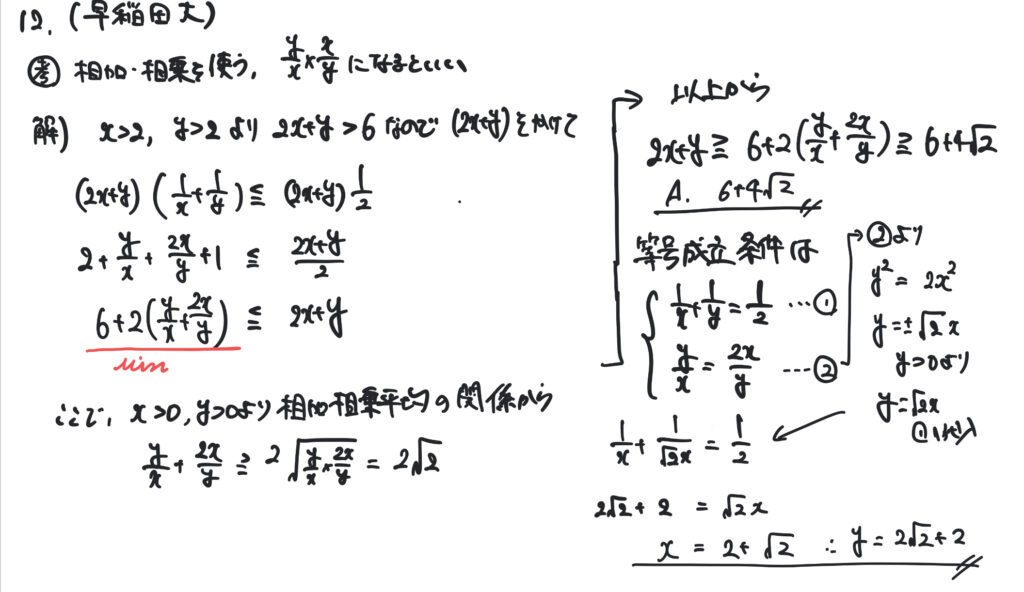 12. (早稲田大)
考 相加・相乗を使う, y/x × x/y になるといい、
解) x>2, y>2 より 2x+y>6 なので (2x+y) をかけて
(2x+y)(1/x+1/y)≦(2x+y)1/2
2+y/x+2x/y+1≦(2x+y)/2
6+2(y/x+2x/y)≦2x+y
min
ここで, x>0, y>0より 相加相乗平均の関係から
y/x+2x/y≧2√(y/x×2x/y)=2√2
以上から
2x+y≧6+2(y/x+2x/y)≧6+4√2
A. 6+4√2
等号成立条件は
1/x+1/y=1/2 …①
y/x=2x/y …②
②より
y²=2x²
y=±√2x
y>0より
y=√2x
①に代入
1/x+1/(√2x)=1/2
2√2+2=√2x
x=2+√2 ∴y=2√2+2